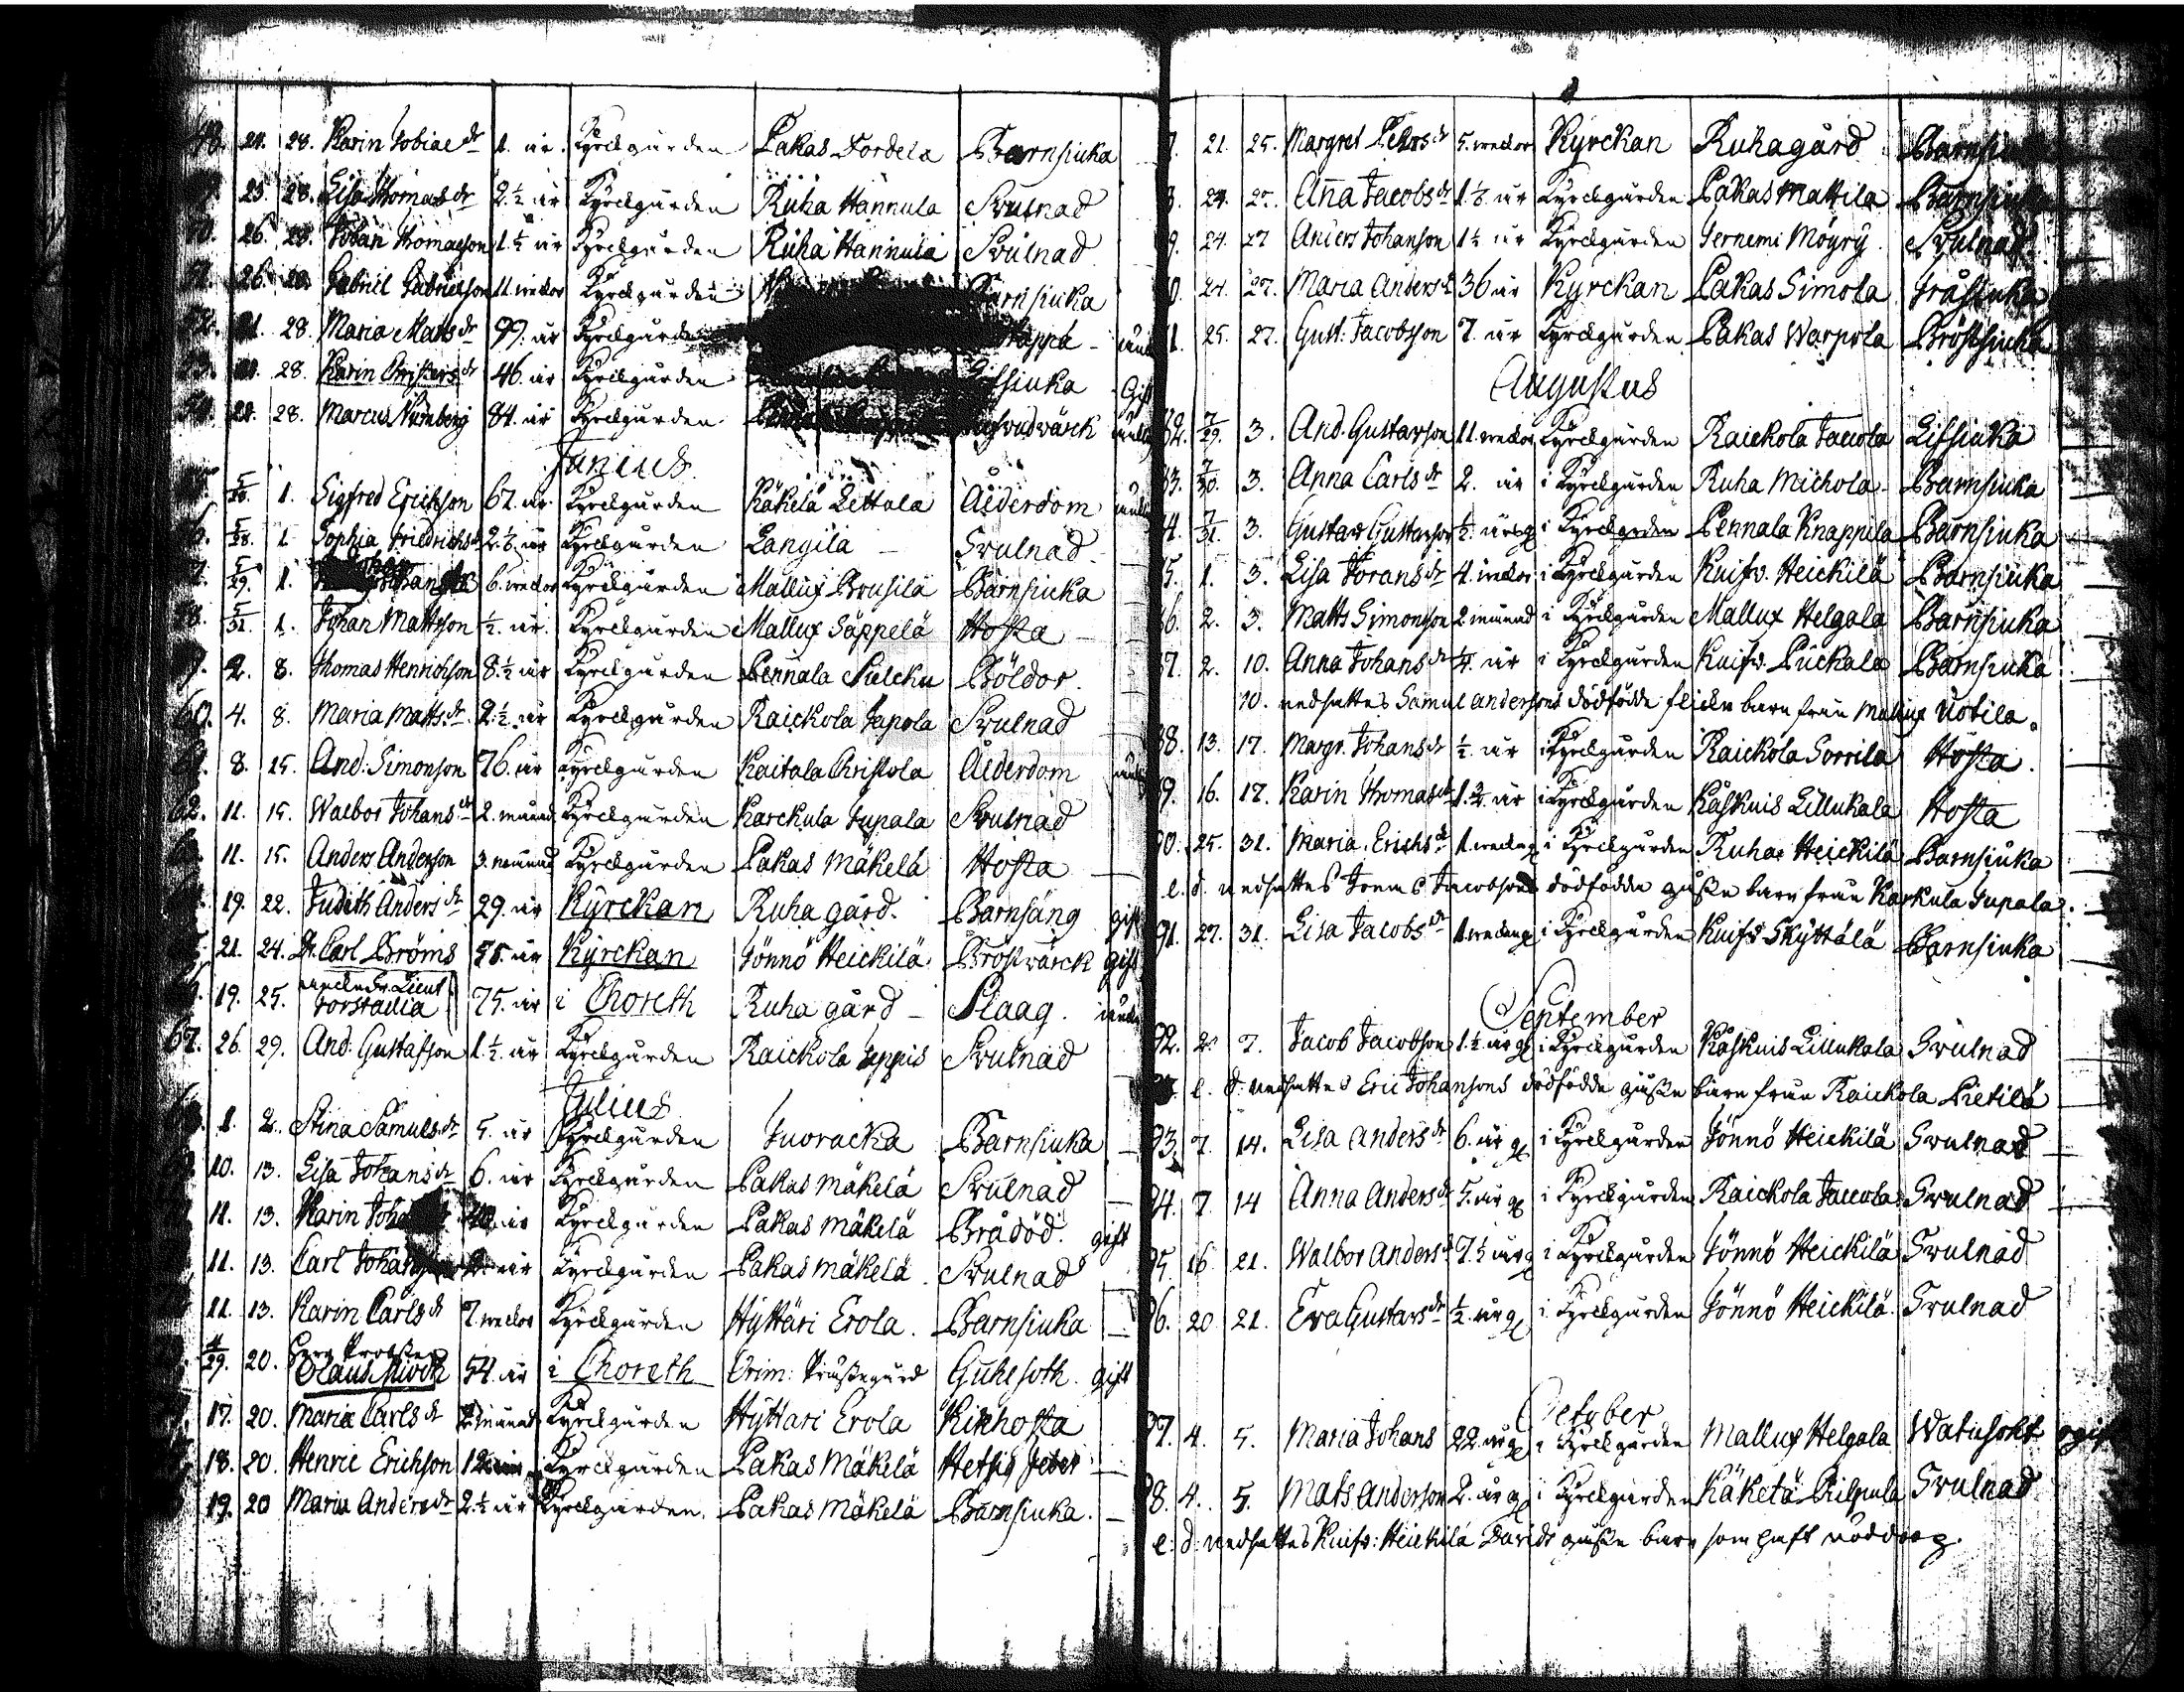 24. 28. Karin Tobiae dr 1. år. Kyrckgården Pakas Tordela Barnsiuka
25. 28. Lisa Thomas dr 2.½ år Kyrckgården Ruha Hannula Svulnad
26. 28. Johan Thomasson 1.½ år Kyrckgården Ruha Hannula Svulnad
26. 28. Gabriel Gabrielson 11. weckor Kyrckgården Barnsiuka
28. Maria Mats dr 99. år Kyrckgården
28. Karin Christers dr 46. år Kyrckgården Gift
28. Marcus Nürnberg 84. år Kyrckgården
Junius
5/30. 1. Sigfred Erichson 67. år Kyrckgården Käkelä Lettala Ålderdom
5/28. 1. Sophia Friedrichs dr 2.½ år Kyrckgården Langila Svulnad
5/29. 1. 6. weckor Kyrckgården Mallux Brusila Barnsiuka
5/31. 1. Johan Mattsson ½. år. Kyrckgården Mallux Säppelä Hosta
2. 8. Thomas Henrichson 8.½ år Kyrckgården Pennala Böldor.
60. 4. 8. Maria Matts. dr 2.½ år Kyrckgården Raickola Jupola Svulnad
8. 15. And: Simonson 76. år Kyrckgården Kaitala Christola Ålderdom
62. 11. 15. Walbor Johans dr 2. månad Kyrckgården Karckula Jupala Svulnad
11. 15. Anders Anderson 3. månad Kyrckgården Pakas Mäkelä Hosta
19. 22. Judith Anders dr 29. år Kyrckan Ruha gård. Barnsäng gift
21. 24. Carl Bröms 55. år Kyrckan Jönnö Heickilä Bröstwärck gift
19. 25. Lieut 75. år i Choreth Ruha gård Slaag.
67. 26. 29. And: Gustafson 1.½. år Kyrckgården Raickola Jeppis Svulnad
Julius
1. 2. Stina Samuels. dr 5. år Kyrckgården Juoracka Barnsiuka
10. 13. Lisa Johans dr 6. år Kyrckgården Pakas Mäkelä Svulnad
11. 13. Karin år Kyrckgården Pakas Mäkelä Brådöd. gift
11. 13. Carl Johanson år Kyrckgården Pakas Mäkelä Svulnad
11. 13. Karin Carls dr 7. weckor Kyrckgården Hyttäri Erola. Barnsiuka
29. 20. Herr Probsten Olaus 54. år i Choreth Orim: Prästegård Gulesoth. gift
17. 20. Maria Carls dr månad Kyrckgården Hyttäri Erola Kikhosta
18. 20. Henric Erichson 12 Kyrckgården Pakas Mäkelä Hetsig feber
19. 20 Maria Anders dr 2.½ år Kyrckgården. Pakas Mäkelä Barnsiuka.
21. 25. Margret Peters dr 5. weckor Kyrckan Ruhagård
24. 27. Anna Jacobs dr 1.½ år Kyrckgården Pakas Mattila Barnsiuka
24. 27 Anders Johanson 1½ år Kyrckgården Jernemi Möyry. Svulnad
24. 27. Maria Anders dr 36 år Kyrckan Pakas Simola
25. 27. Gust: Jacobson 7. år Kyrckgården Pakas Warpola Bröstsiuka
Augustus
82. 7/29. 3. And. Gustavson 11. weckor Kyrckgården Raickola Jaccola
83. 7/30. 3. Anna Carls dr 2. år i Kyrckgården Ruha Michola Barnsiuka
84. 7/31. 3. Gustav Gustavson ½. år i Kyrckgården Pennala Knappila Barnsiuka
85. 1. 3. Lisa Jorans dr 4. weckor i Kyrckgården Kuifv. Heickilä Barnsiuka
86. 2. 3. Matts Simonson 2 månad i Kyrckgården Mallux Helgala Barnsiuka
87. 2. 10. Anna Johans dr ¼. år i Kyrckgården Kuifv. Puckala Barnsiuka
10. nedsattes Samul Andersons dödfödde flicke barn från Mallux Uotila.
88. 13. 17. Margr. Johans dr ½. år i Kyrckgården Raickola Sorrila Hosta.
89. 16. 17. Karin Thomas dr 1.¾. år i Kyrckgården Käskuis Lillukala Hosta
90. 25. 31. Maria. Erichs dr 1. weckog i Kyrckgården Ruha Heickilä Barnsiuka
e. d. nedsattes Joens Jacobsons dödfödde gåsse barn från Karkula Jupala.
91. 27. 31. Lisa Jacobs dr i Kyrckgården Kuifv Skyttälä Barnsiuka
September
92. 2. 7. Jacob Jacobson 1.½ år g i Kyrckgården Käskuis Lillukala Svulnad
e. d: nedsattes Eric Johansons dödfödde gåsse barn från Raickola Pietilä
93. 7. 14. Lisa Anders dr 6. år g i Kyrckgården Jönnö Heickilä Svulnad
94. 7. 14 Anna Anders dr 5. år g i Kyrckgården Raickola Jaccola Svulnad
95. 16. 21. Walbor Anders dr 7.½ år g i Kyrckgården Jönnö Heickilä Svulnad
96. 20 21. Eva Gustavs dr ½. år g i Kyrckgården Jönnö Heickilä. Svulnad
October
97. 4. 5. Maria Johans 22. år g i Kyrckgården Mallux Helgala Watusoht ogift
98. 4. 5. Mats Anderson 2. år g i Kyrckgården Käkelä Kilpiula Svulnad
e: d: nedsattes Kuifv: Heickilä Davids gåsse barn som haft nöddop.